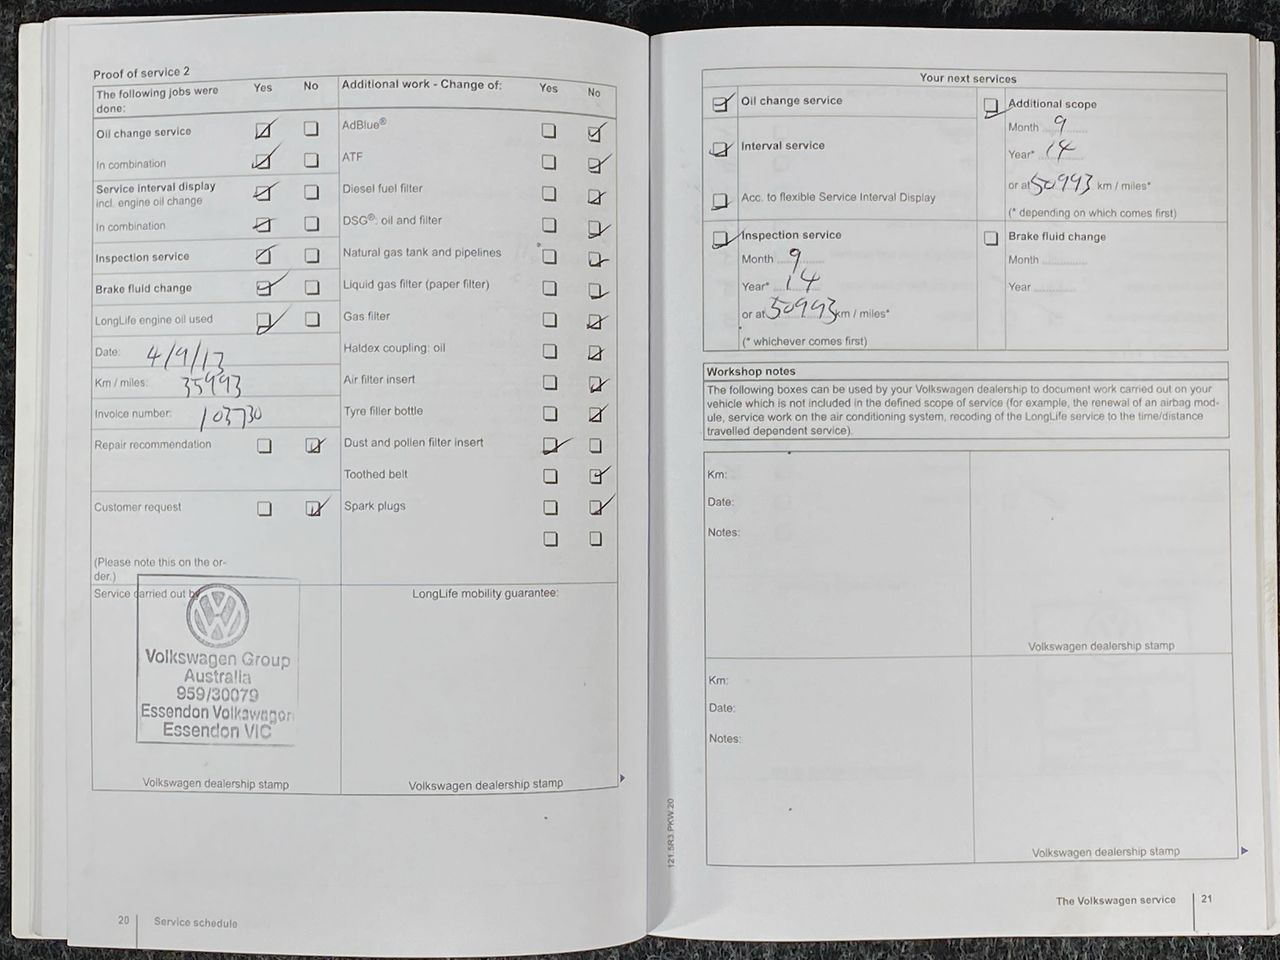 Proof of service 2
The following jobs were done: Yes No
Oil change service
In combination
Service interval display
incl. engine oil change
In combination
Inspection service
Brake fluid change
LongLife engine oil used
Date: 4/9/13
Km / miles: 35993
Invoice number: 103730
Repair recommendation
Customer request
(Please note this on the or-
der.)
Additional work - Change of: Yes No
AdBlue®
ATF
Diesel fuel filter
DSG®: oil and filter
Natural gas tank and pipelines
Liquid gas filter (paper filter)
Gas filter
Haldex coupling: oil
Air filter insert
Tyre filler bottle
Dust and pollen filter insert
Toothed belt
Spark plugs
Service carried out by
Volkswagen Group
Australia
959/30079
Essendon Volkswagen
Essendon VIC
Volkswagen dealership stamp
LongLife mobility guarantee:
Volkswagen dealership stamp
20 Service schedule
Your next services
Oil change service
Interval service
Acc. to flexible Service Interval Display
Additional scope
Month 9
Year* 14
or at 50993 km / miles*
(* depending on which comes first)
Inspection service
Month 9
Year* 14
or at 50993 km / miles*
(* whichever comes first)
Brake fluid change
Month
Year
Workshop notes
The following boxes can be used by your Volkswagen dealership to document work carried out on your
vehicle which is not included in the defined scope of service (for example, the renewal of an airbag mod-
ule, service work on the air conditioning system, recoding of the LongLife service to the time/distance
travelled dependent service).
Km:
Date:
Notes:
Volkswagen dealership stamp
Km:
Date:
Notes:
Volkswagen dealership stamp
121.5R3.PKW.20
The Volkswagen service 21